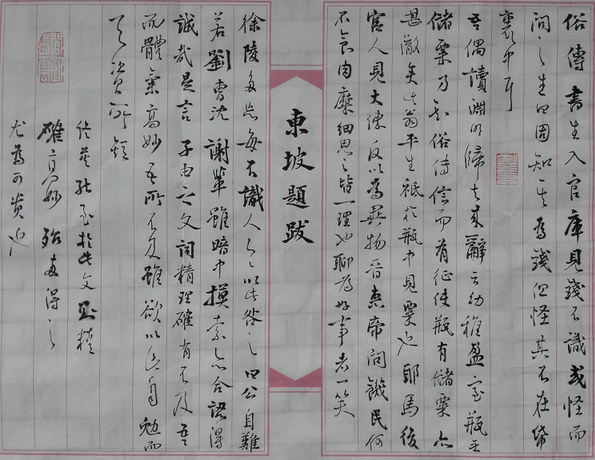 俗傳書生入官庫見錢不識或怪而
問之生曰固知其為錢但怪其不在紙
裹中耳
吾偶讀淵明歸去來辭云幼稚盈室瓶無
儲粟乃知俗傳信而有征使瓶有儲粟亦
甚微矣此翁平生祗於瓶中見粟也耶馬後
宮人見大練反以為異物晉惠帝問饑民何
不食肉糜細思之皆一理也聊為好事者一笑
東坡題跋
徐陵多忘每不識人人以此咎之曰公自難
若劉曹沈謝輩雖暗中摸索亦合認得
誠哉是言子由之文詞精理確有不及吾
而體氣高妙吾所不及雖欲以此自勉而
天資所短
終莫能至於此文則精
確高妙殆兩得之
尤為可貴也